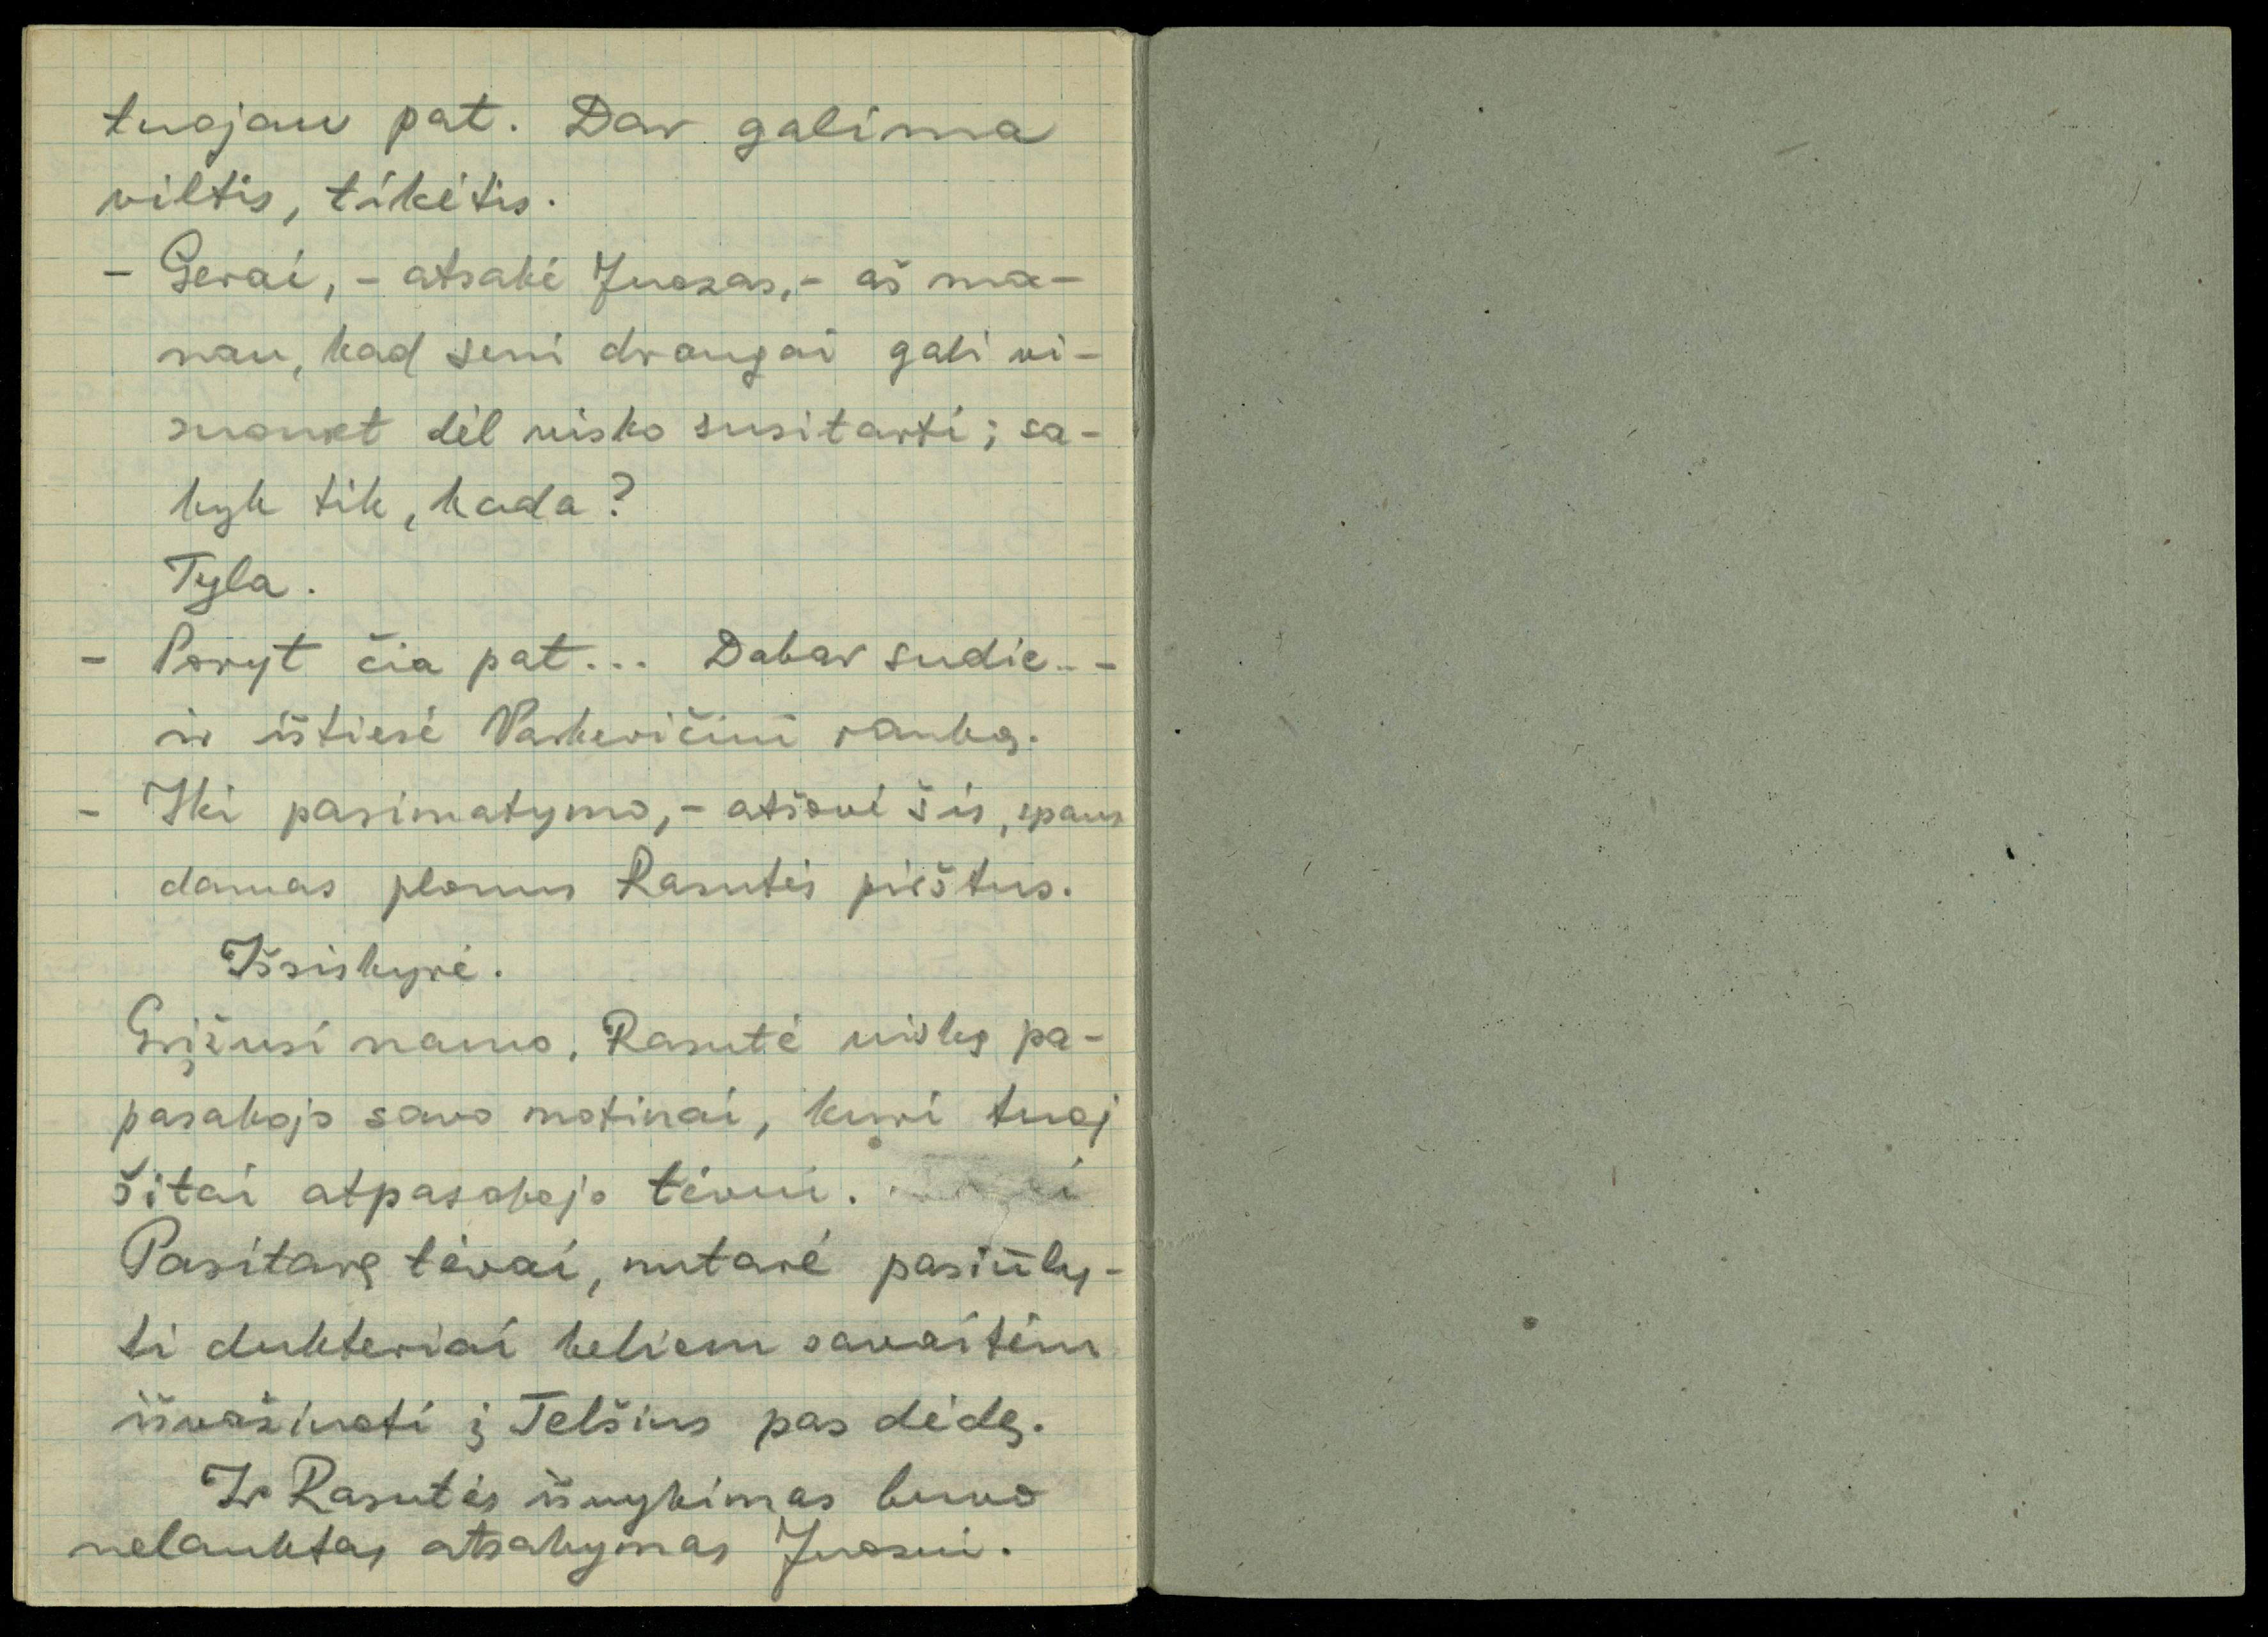 tuojau pat. Dar galima
viltis, tikėtis.
- Gerai, - atsakė Juozas, - aš ma-
nau, kad seni draugai gali vi-
suomet dėl visko susitarti; sa-
kyk tik, kada?
Tyla.
- Poryt čia pat... Dabar sudie.. -
ir ištiesė Vaskevičiui ranką.
- Iki pasimatymo, - atšovė šis, spaus
damas plonus Rasutės pirštus.
Išsiskyrė.
Grįžusi namo, Rasutė viską pa-
pasakojo savo motinai, kuri tuoj
šitai atpasakojo tėvui.
Pasitarę tėvai, nutarė pasiūly-
ti dukteriai keliem savaitėm
išvažiuoti į Telšius pas dėdę.
Ir Rasutės išvykimas buvo
nelauktas atsakymas Juozui.